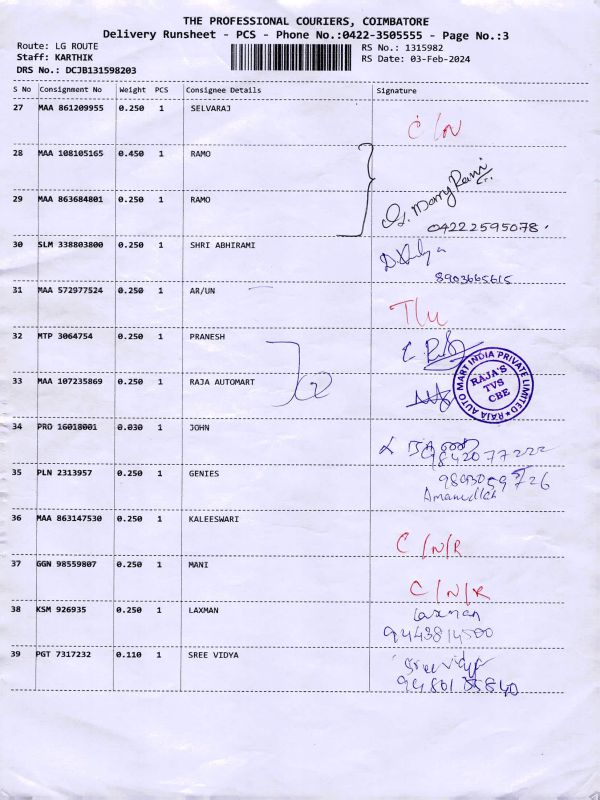 THE PROFESSIONAL COURIERS, COIMBATORE
Delivery Runsheet - PCS - Phone No.:0422-3505555 - Page No.:3
Route: LG ROUTE RS No.: 1315982
Staff: KARTHIK RS Date: 03-Feb-2024
DRS No.: DCJB131598203
S No Consignment No Weight PCS Consignee Details Signature
27 MAA 861209955 0.250 1 SELVARAJ
C/N
28 MAA 108105165 0.450 1 RAMO
Mary Rani
29 MAA 863684801 0.250 1 RAMO
04222595078
30 SLM 338803800 0.250 1 SHRI ABHIRAMI
8903665615
31 MAA 572977524 0.250 1 AR/UN
T/U
32 MTP 3064754 0.250 1 PRANESH
33 MAA 107235869 0.250 1 RAJA AUTOMART
RAJA AUTO MART INDIA PRIVATE LIMITED
RAJA'S
TVS
CBE
34 PRO 16018001 0.030 1 JOHN
9842077222
35 PLN 2313957 0.250 1 GENIES
9893059726
Amanullah
36 MAA 863147530 0.250 1 KALEESWARI
C/N/R
37 GGN 98559807 0.250 1 MANI
C/N/R
38 KSM 926935 0.250 1 LAXMAN
Laxman
9443814500
39 PGT 7317232 0.110 1 SREE VIDYA
Sree Vidya